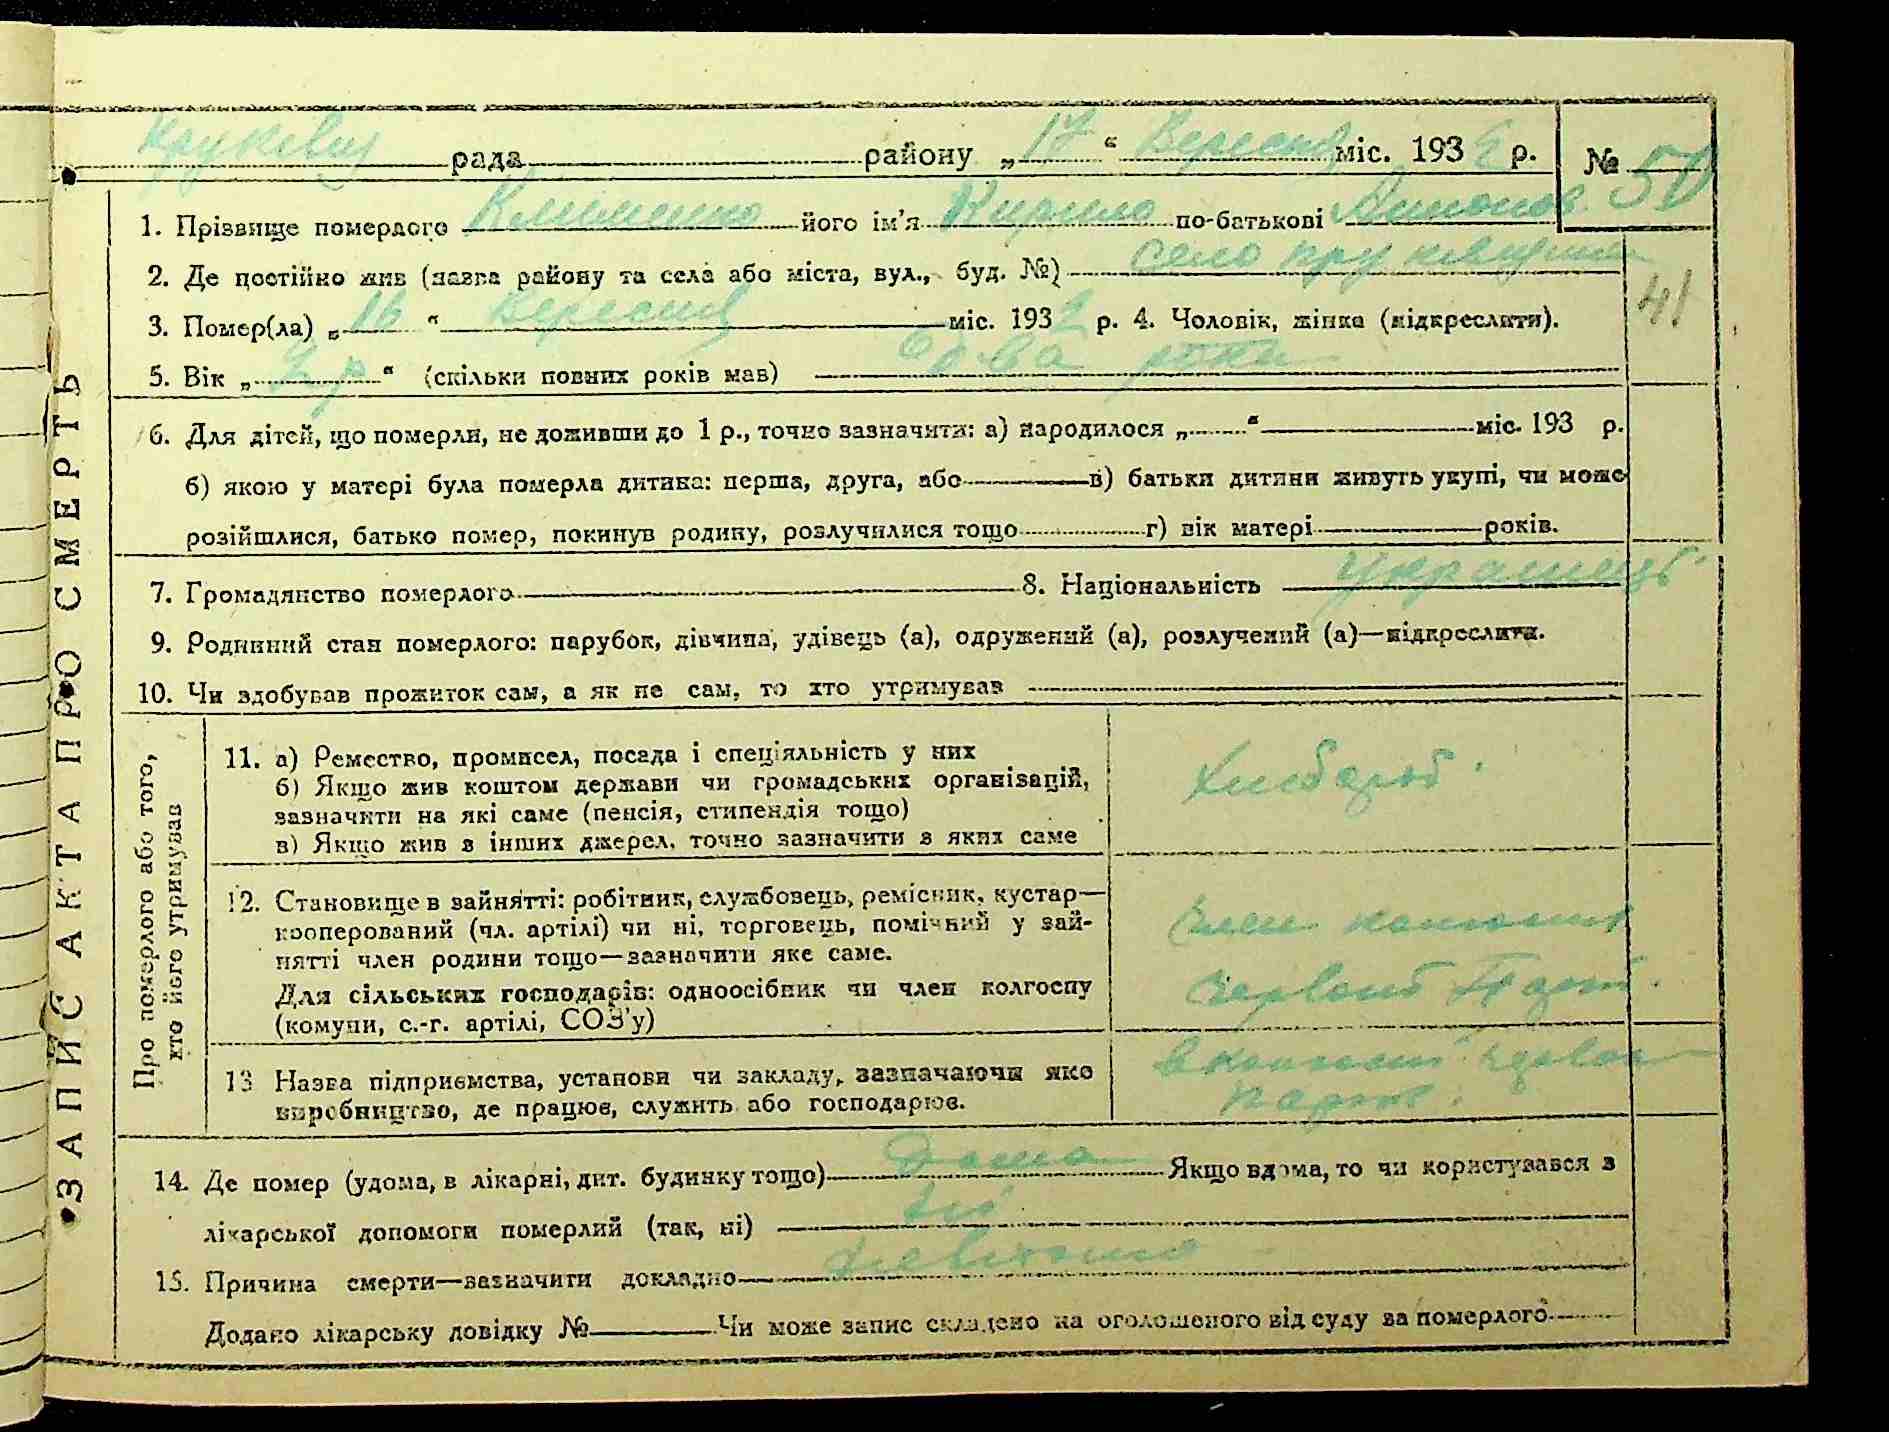 рада району „17“ Вересня міс. 1932 р. № 50
1. Прізвище померлого Клименко його ім'я Кирило по-батькові Антонов.
2. Де постійно жив (назва району та села або міста, вул., буд. №) село
41
3. Помер(ла) „16“ Вересня міс. 1932 р. 4. Чоловік, жінка (підкреслити).
5. Вік „2 р“ (скільки повних років мав) два роки
6. Для дітей, що померли, не доживши до 1 р., точно зазначити: а) народилося „ “ міс. 193 р.
б) якою у матері була померла дитина: перша, друга, або в) батьки дитини живуть укупі, чи може
розійшлися, батько помер, покинув родину, розлучилися тощо г) вік матері років.
7. Громадянство померлого 8. Національність Українець
9. Родинний стан померлого: парубок, дівчина, удівець (а), одружений (а), розлучений (а)—підкреслити.
10. Чи здобував прожиток сам, а як не сам, то хто утримував
Про померлого або того,
хто його утримував
11. а) Ремество, промисел, посада і спеціяльність у них
б) Якщо жив коштом держави чи громадських організацій,
зазначити на які саме (пенсія, стипендія тощо)
в) Якщо жив з інших джерел, точно зазначити з яких саме
Хлібороб.
12. Становище в зайнятті: робітник, службовець, ремісник, кустар—
кооперований (чл. артілі) чи ні, торговець, помічний у зай-
нятті член родини тощо—зазначити яке саме.
Для сільських господарів: одноосібник чи член колгоспу
(комуни, с.-г. артілі, СОЗ'у)
член
13 Назва підприємства, установи чи закладу, зазначаючи яке
виробництво, де працює, служить або господарює.
14. Де помер (удома, в лікарні, дит. будинку тощо) Дома Якщо вдома, то чи користувався з
лікарської допомоги померлий (так, ні) ні
15. Причина смерти—зазначити докладно невідомо
Додано лікарську довідку № Чи може запис складено на оголошеного від суду за померлого
ЗАПИС АКТА ПРО СМЕРТЬ